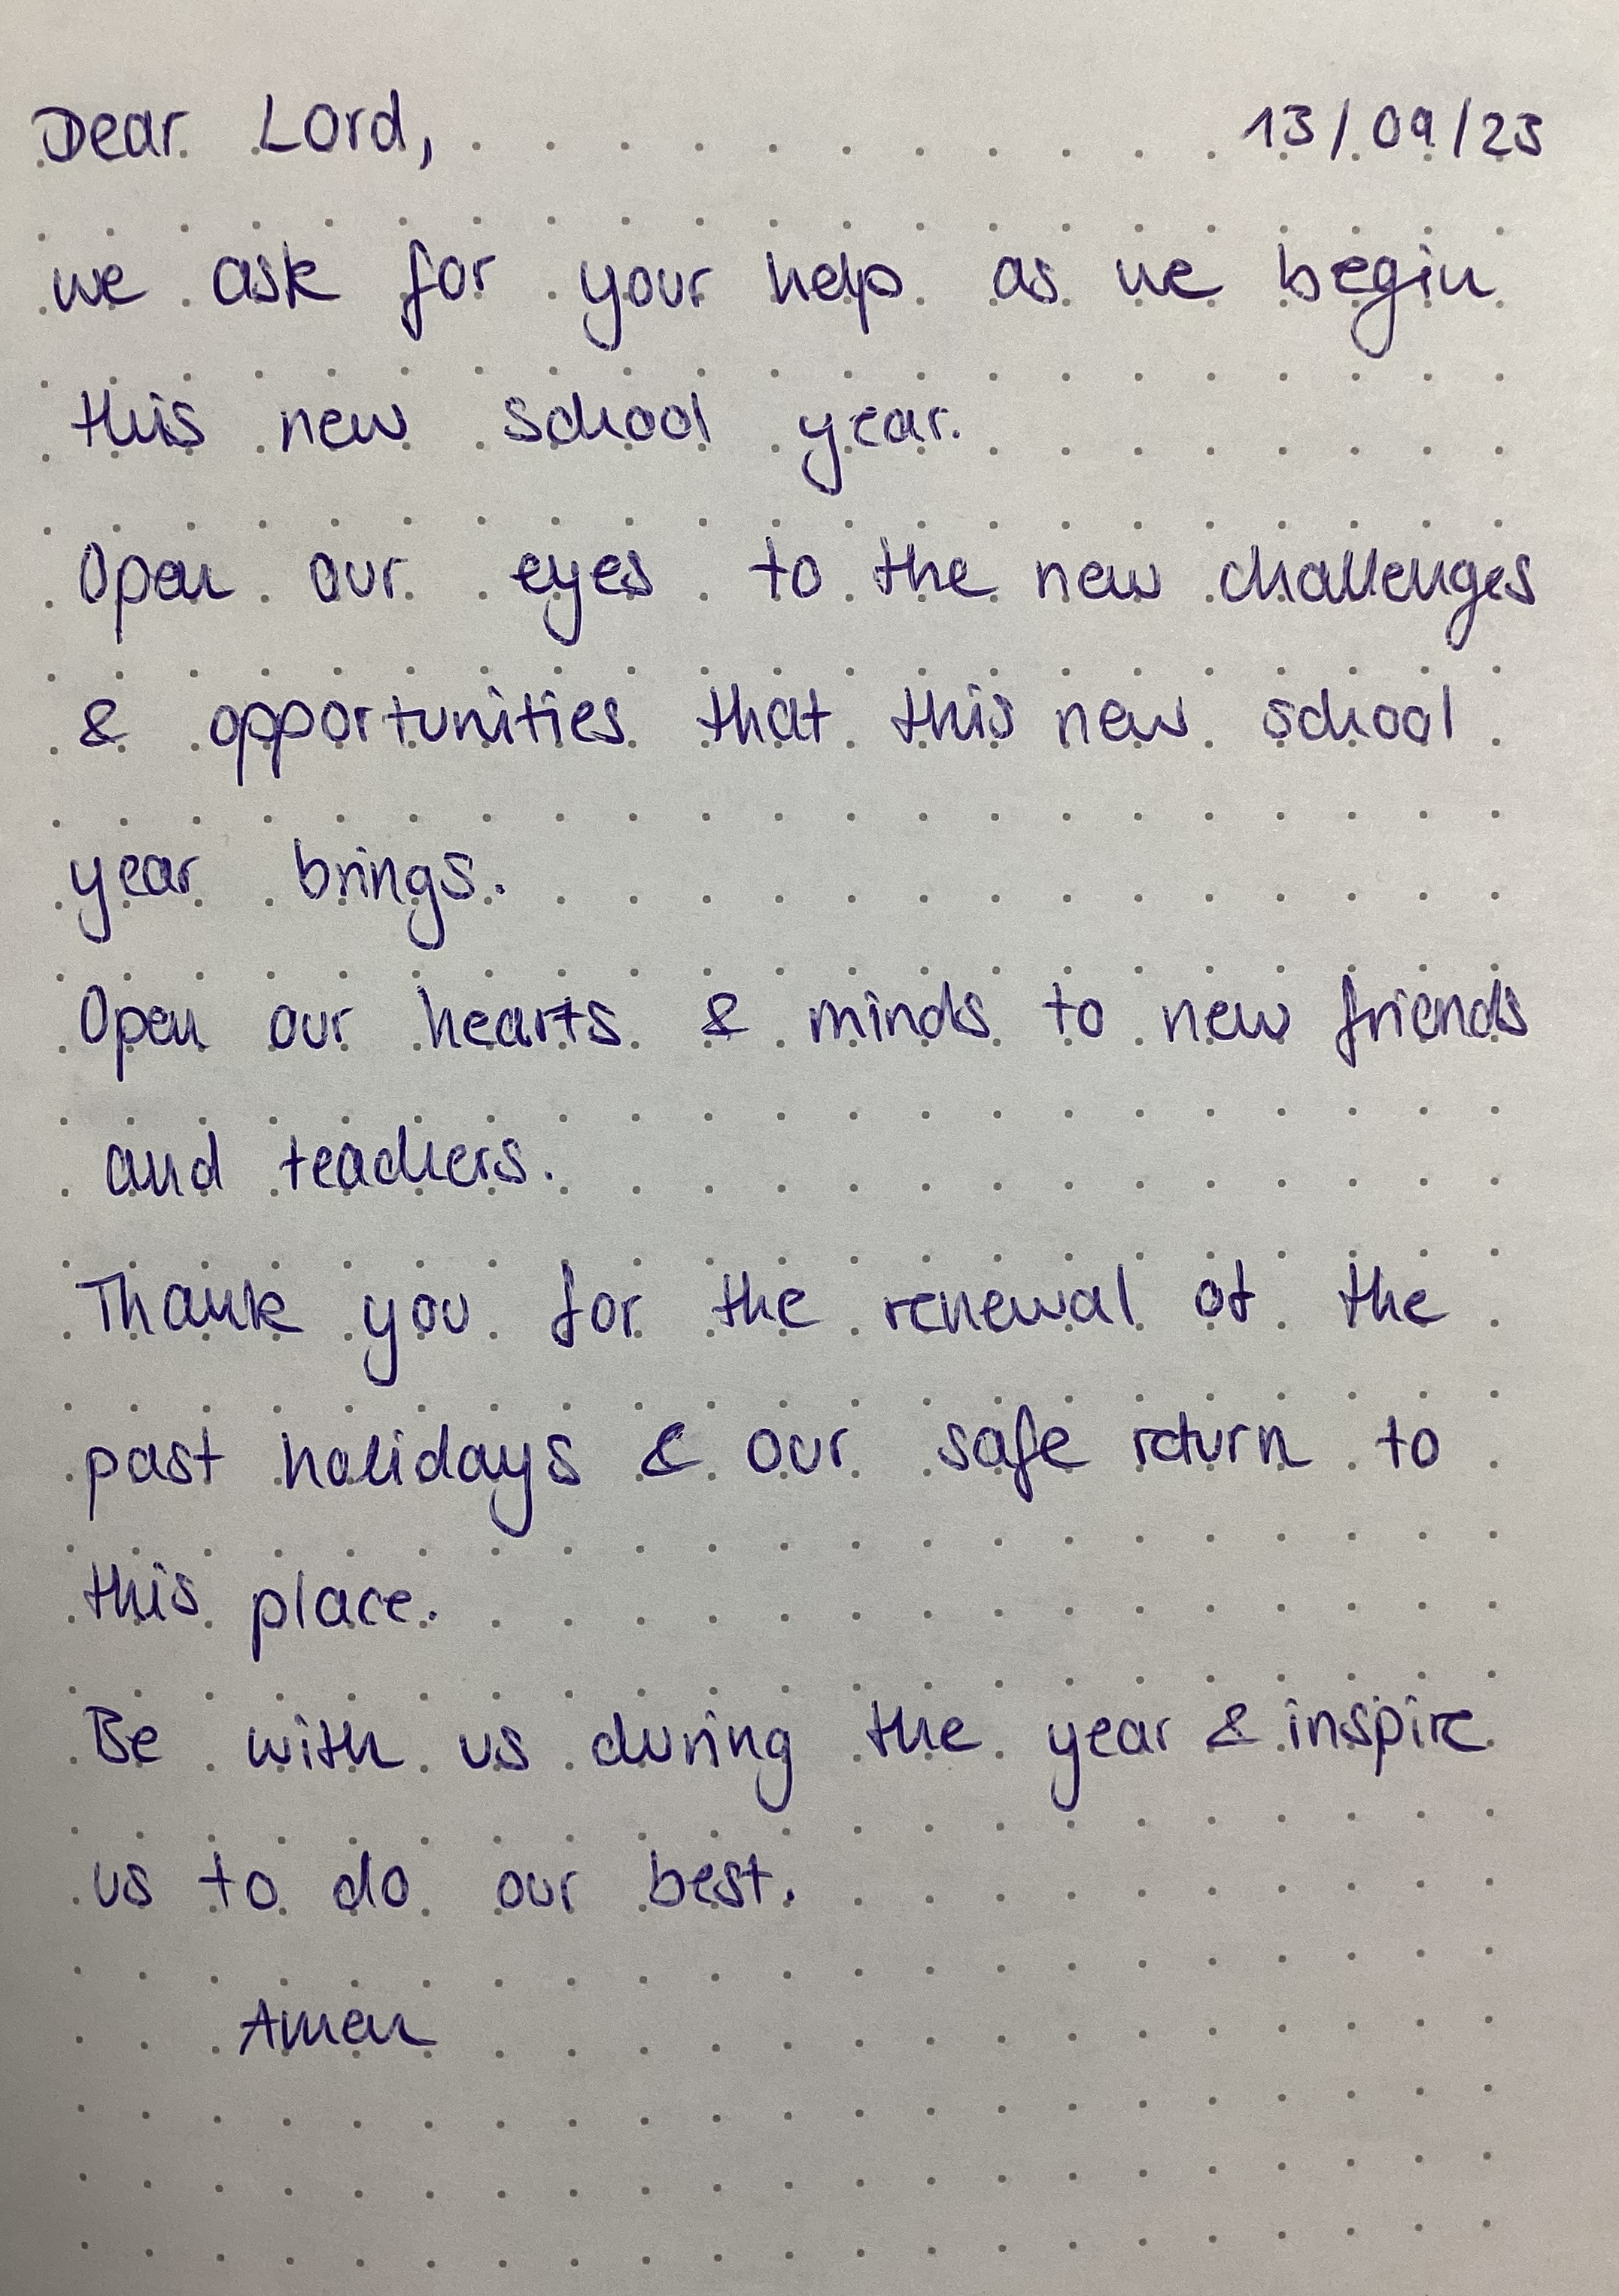 Dear Lord, 13/09/23
we ask for your help as we begin
this new school year.
Open our eyes to the new challenges
& opportunities that this new school
year brings.
Open our hearts & minds to new friends
and teachers.
Thank you for the renewal of the
past holidays & our safe return to
this place.
Be with us during the year & inspire
us to do our best.
Amen